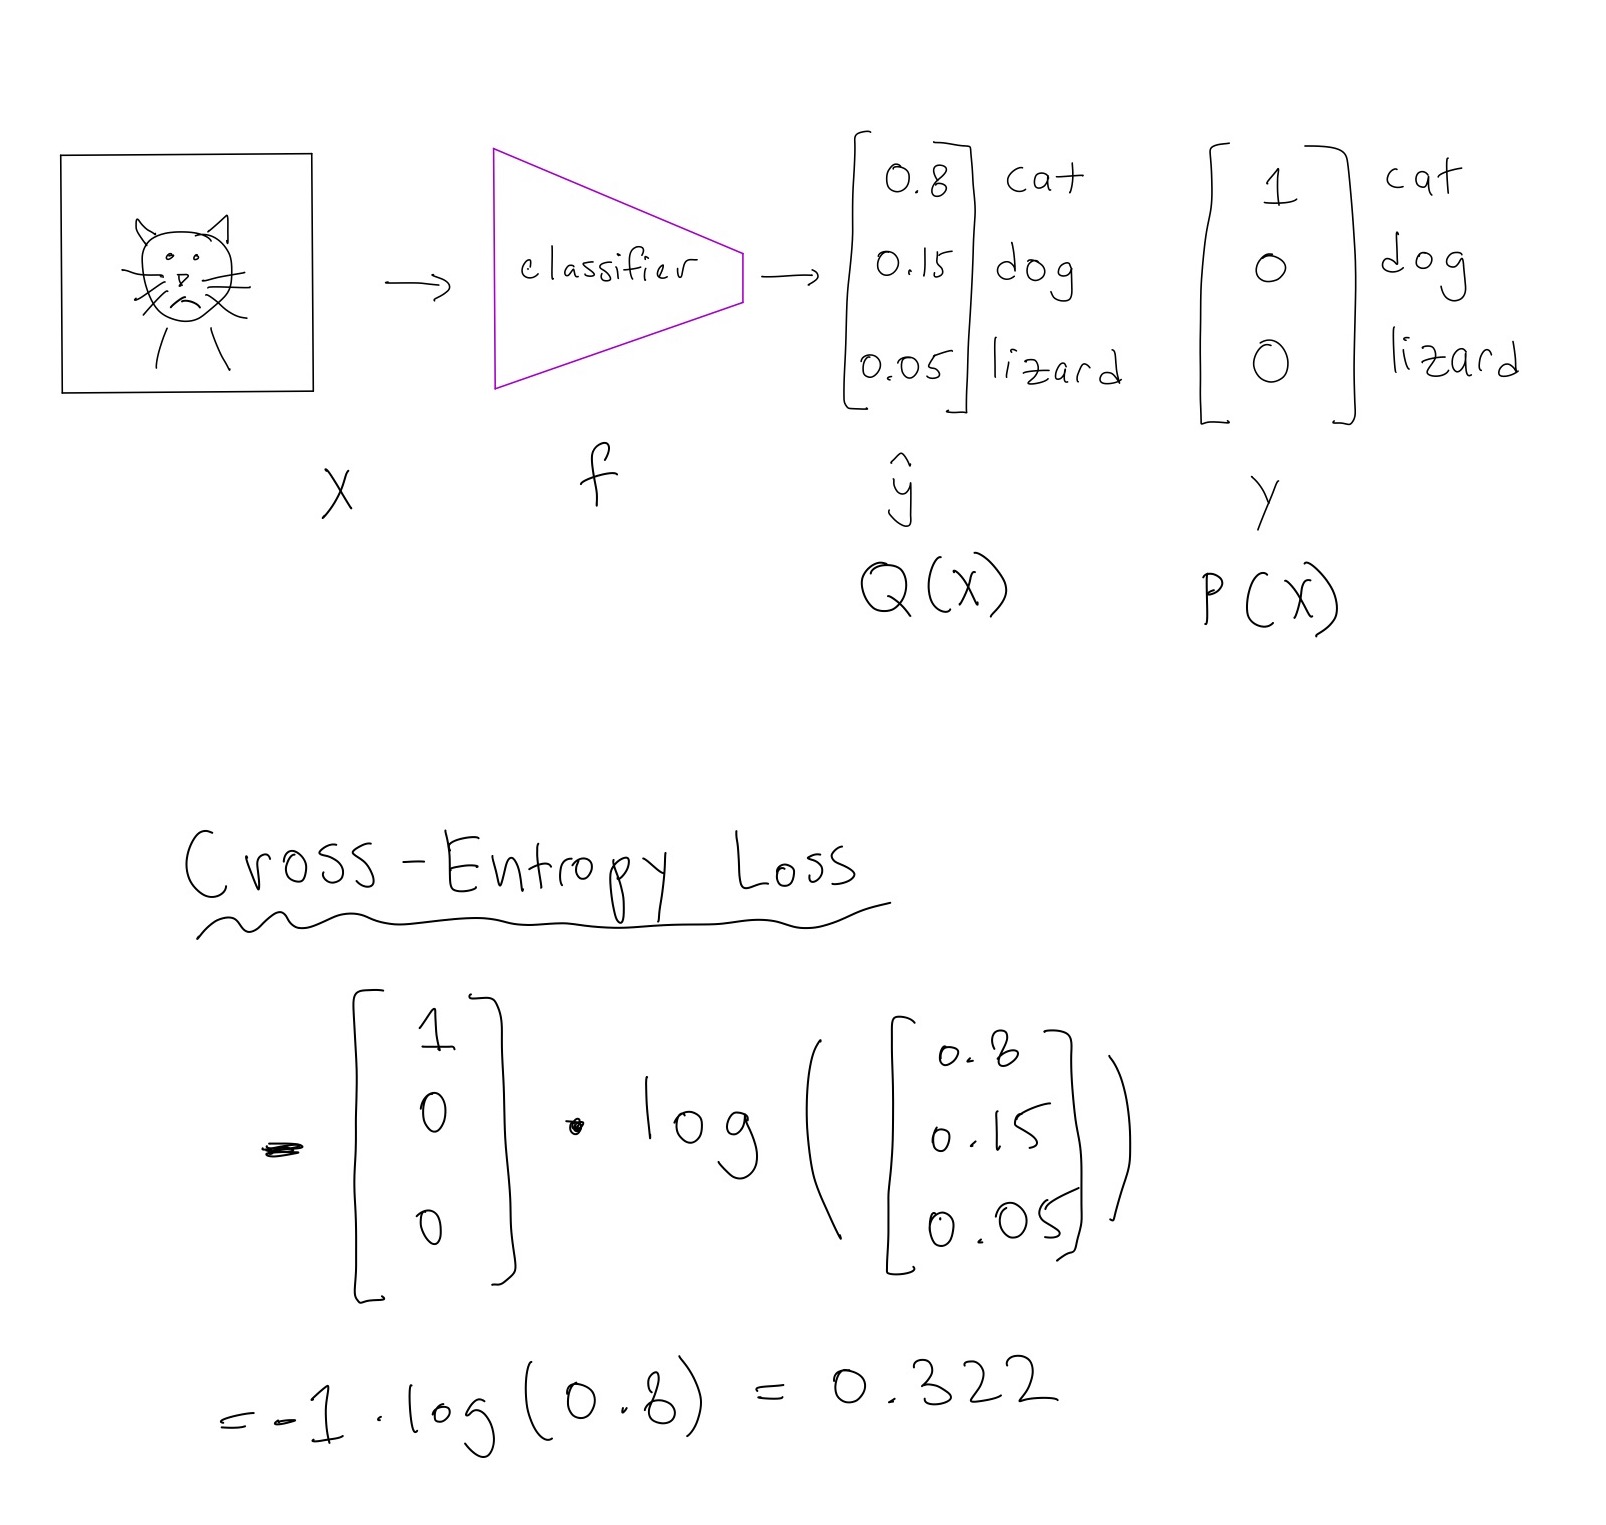 classifier
0.8 cat
0.15 dog
0.05 lizard
1 cat
0 dog
0 lizard
X
f
ŷ
Q(X)
y
P(X)
Cross-Entropy Loss
- [1 0 0] · log([0.8 0.15 0.05])
= -1 · log(0.8) = 0.322